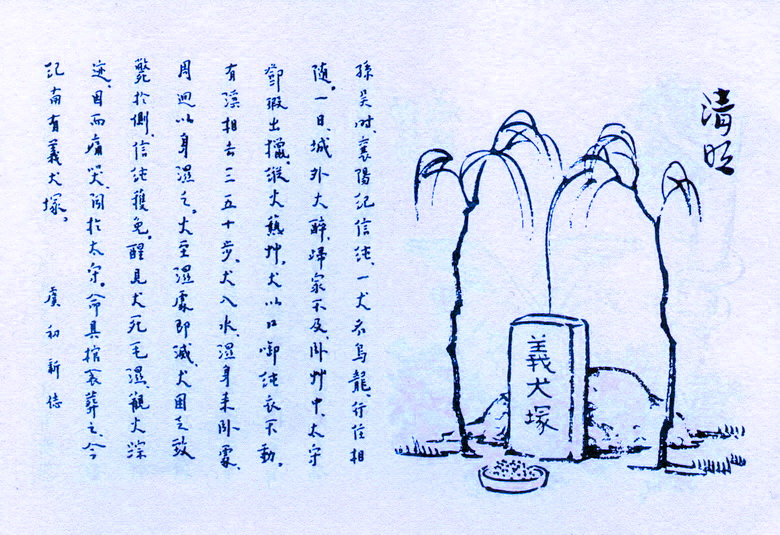 清明
義犬塚
孫吳時、襄陽紀信純、一犬名烏龍、行住相
隨。一日、城外大醉、歸家不及、臥艸中、太守
鄧瑕出獵、縱火爇艸、犬以口啣純衣不動。
有溪相去三五十步、犬入水、濕身来臥處、
周迴以身濕之。火至濕處即滅、犬困乏致
斃於側、信純獲免。醒見犬死毛濕、觀火蹤
迹、因而痛哭、聞於太守。命具棺衾葬之、今
紀南有義犬塚。 虞初新